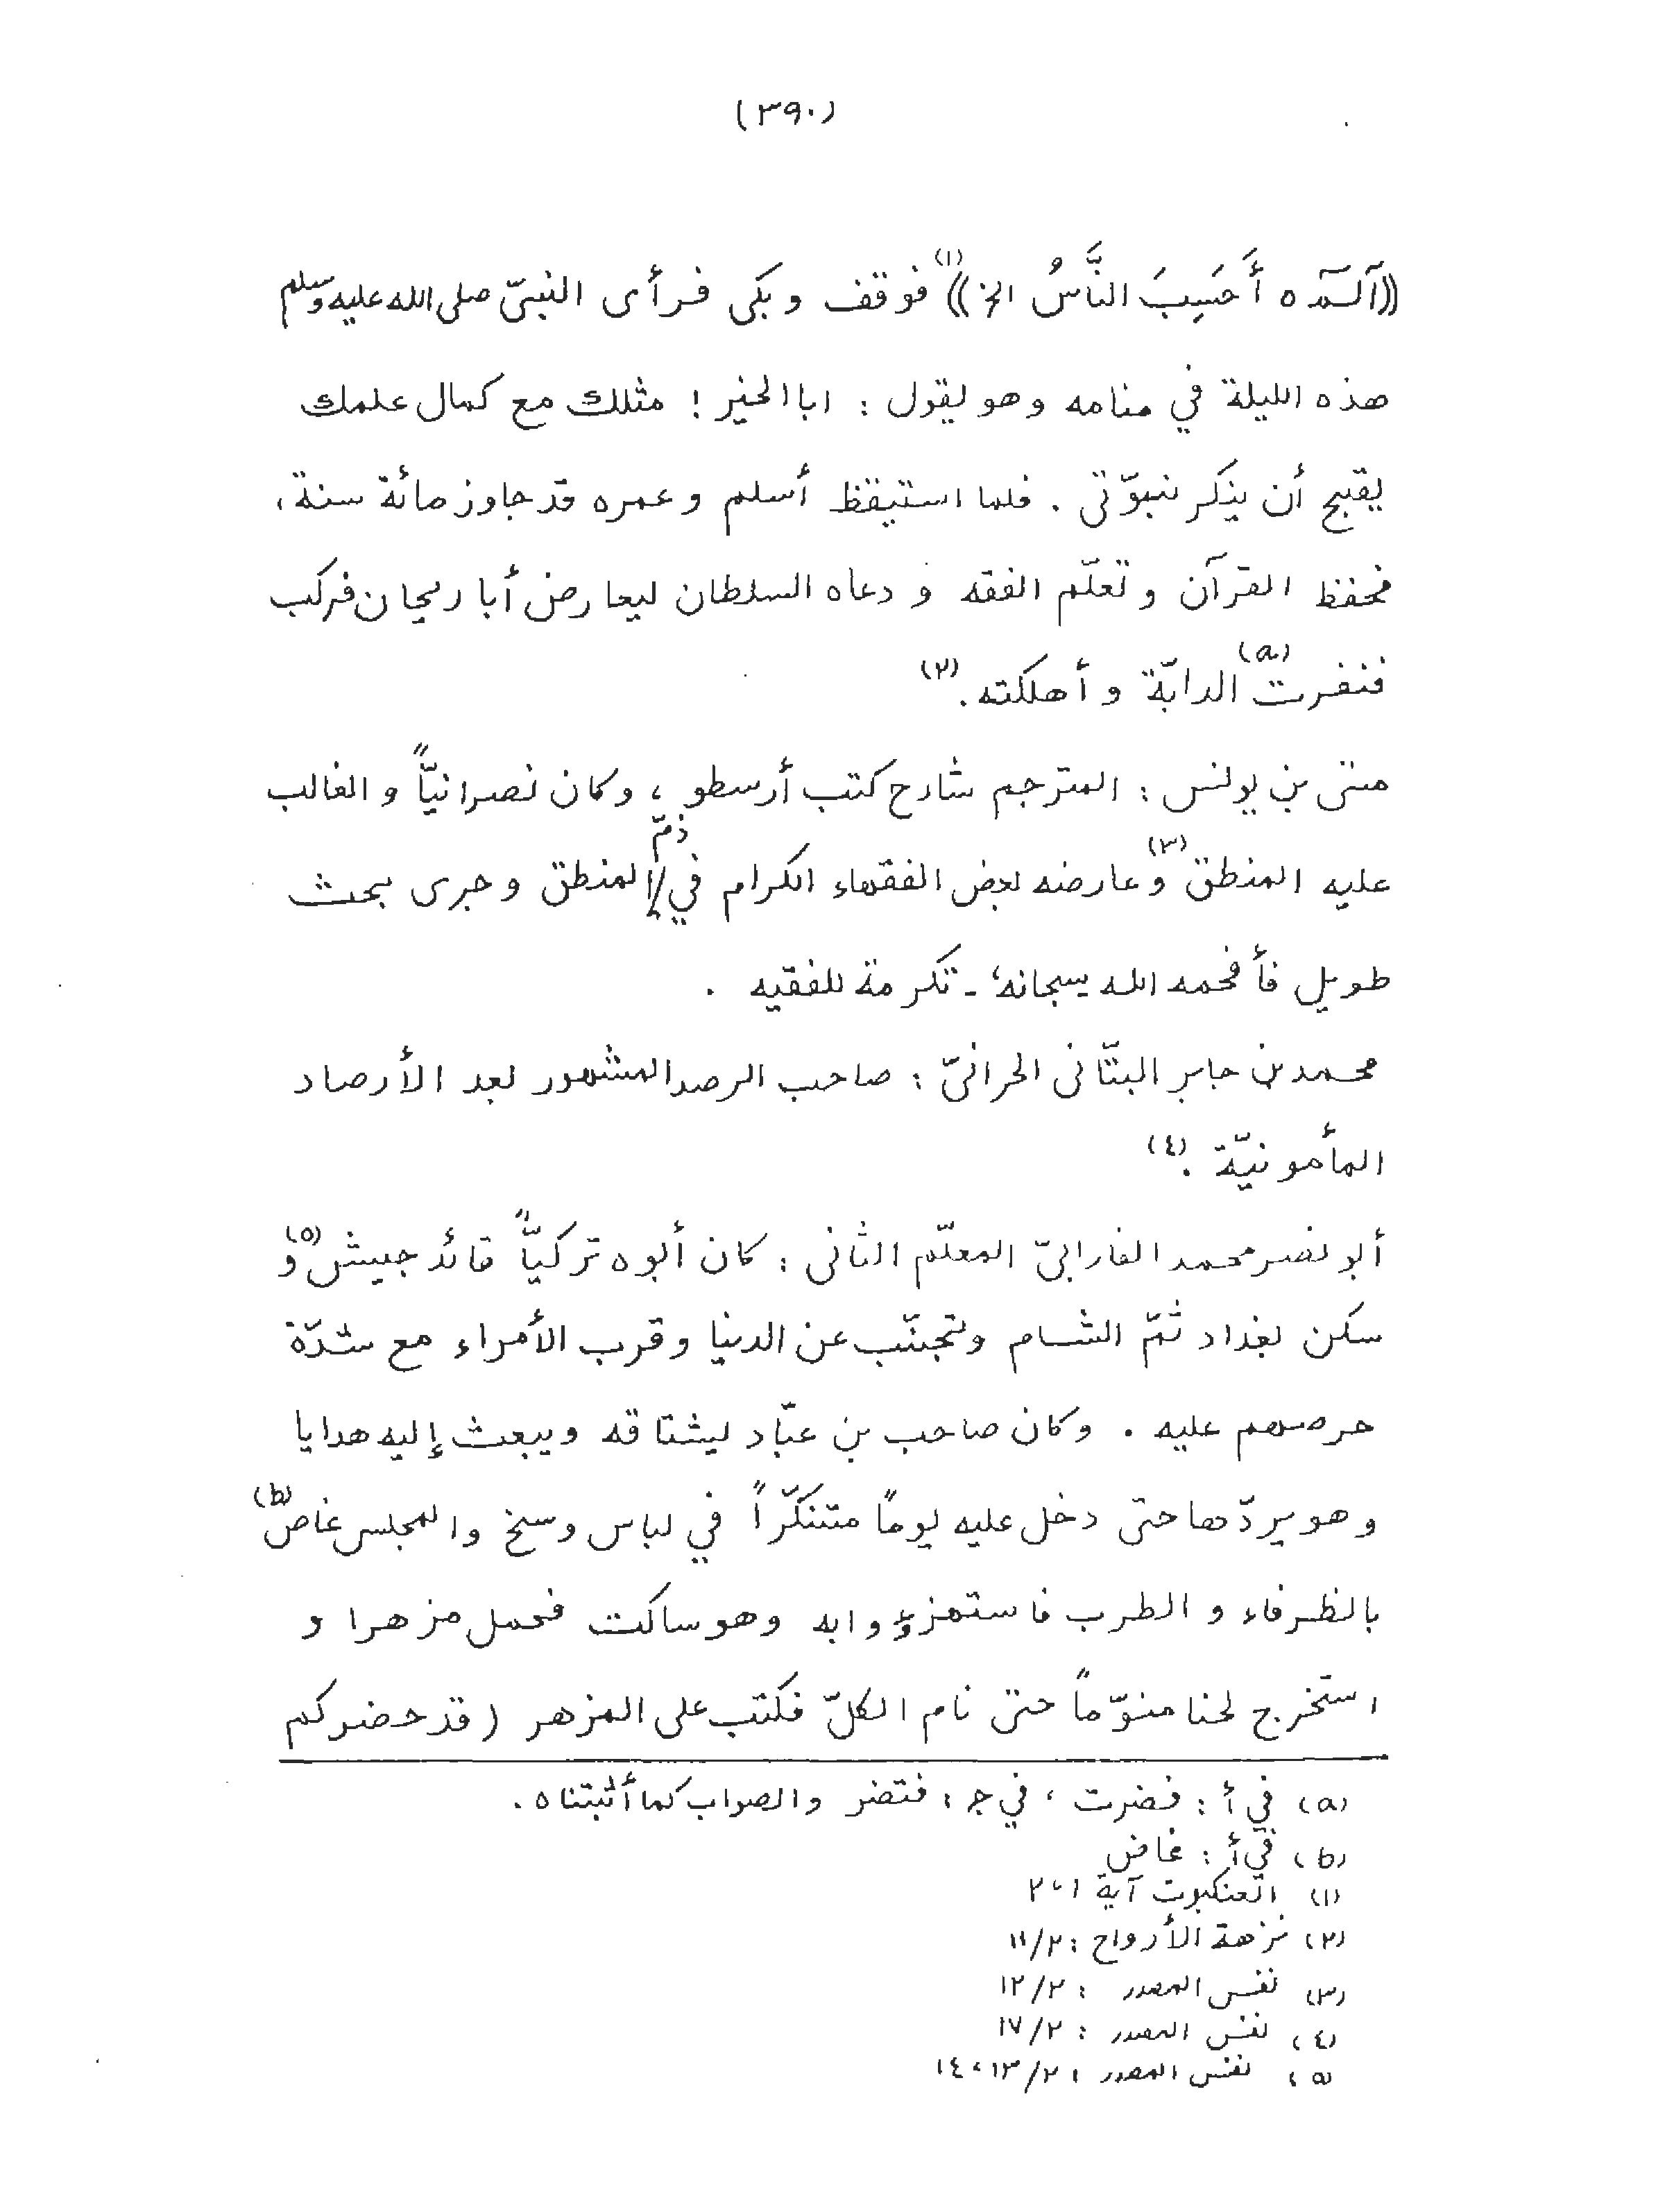 (٣٩٠)
((آلــمّ ٥ أَحَسِبَ النَّاسُ الخ))(١) فوقف وبكى فرأى النبيّ صلى الله عليه وسلم
هذه الليلة في منامه وهو يقول : ابا الخير ! مثلك مع كمال علمك
يقبح أن ينكر نبوّتي . فلما استيقظ أسلم وعمره قد جاوز مائة سنة ،
فحفظ القرآن وتعلّم الفقه و دعاه السلطان ليعارض أبا ريحان فركب
فنفرت(a) الدابّة و أهلكته .(٢)
متى بن يونس : المترجم شارح كتب أرسطو ، وكان نصرانيّاً و الغالب
عليه المنطق(٣) وعارضه بعض الفقهاء الكرام في ذمّ المنطق وجرى بحث
طويل فأفحمه الله سبحانه ـ تكرمة للفقيه .
محمد بن جابر البتّانى الحرانيّ : صاحب الرصد المشهور بعد الأرصاد
المأمونيّة .(٤)
أبو نصر محمد الفارابيّ المعلّم الثانى : كان أبوه تركيّاً قائد جيش(٥) و
سكن بغداد ثمّ الشام وتجنّب عن الدنيا وقرب الأمراء مع شدّة
حرصهم عليه . وكان صاحب بن عبّاد يشتاقه ويبعث إليه هدايا
وهو يردّها حتى دخل عليه يومًا متنكّرًا في لباس وسخ والمجلس غاص(b)
بالظرفاء و الطرب فاستهزؤوا به وهو ساكت فحمل مزهرا و
استخرج لحنا منوّماً حتى نام الكلّ فكتب على المزهر (قد حضركم
(a) في أ : فضرت ، في ج : فتضر والصواب كما أثبتناه .
(b) في أ : غاض
(١) العنكبوت آية ١ ، ٢
(٢) نزهة الأرواح : ٢/١١
(٣) نفس المصدر : ٢/١٢
(٤) نفس المصدر : ٢/١٧
(٥) نفس المصدر : ٢/١٣ ، ١٤